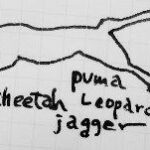 puma
cheetah Leopard
jagger